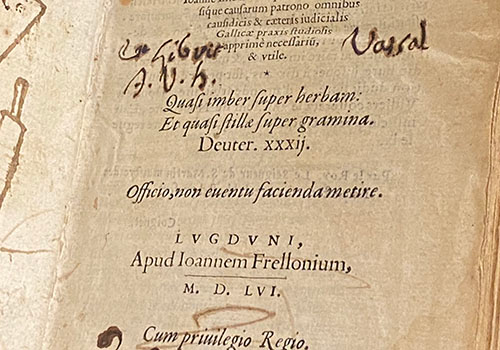 sique causarum patrono omnibus
causidicis & cæteris iudicialis
Gallicæ praxis studiosis
apprime necessariũ,
& vtile.
Vassal
Quasi imber super herbam:
Et quasi stillæ super gramina.
Deuter. XXXIJ.
Officio, non euentu facienda metire.
LVGDVNI,
Apud Ioannem Frellonium,
M. D. LVI.
Cum priuilegio Regio.